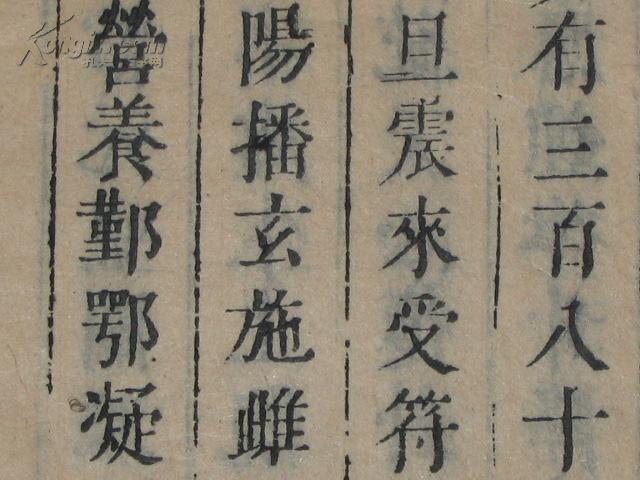 有三百八十
旦震來受符
陽播玄施雌
營養鄞鄂凝